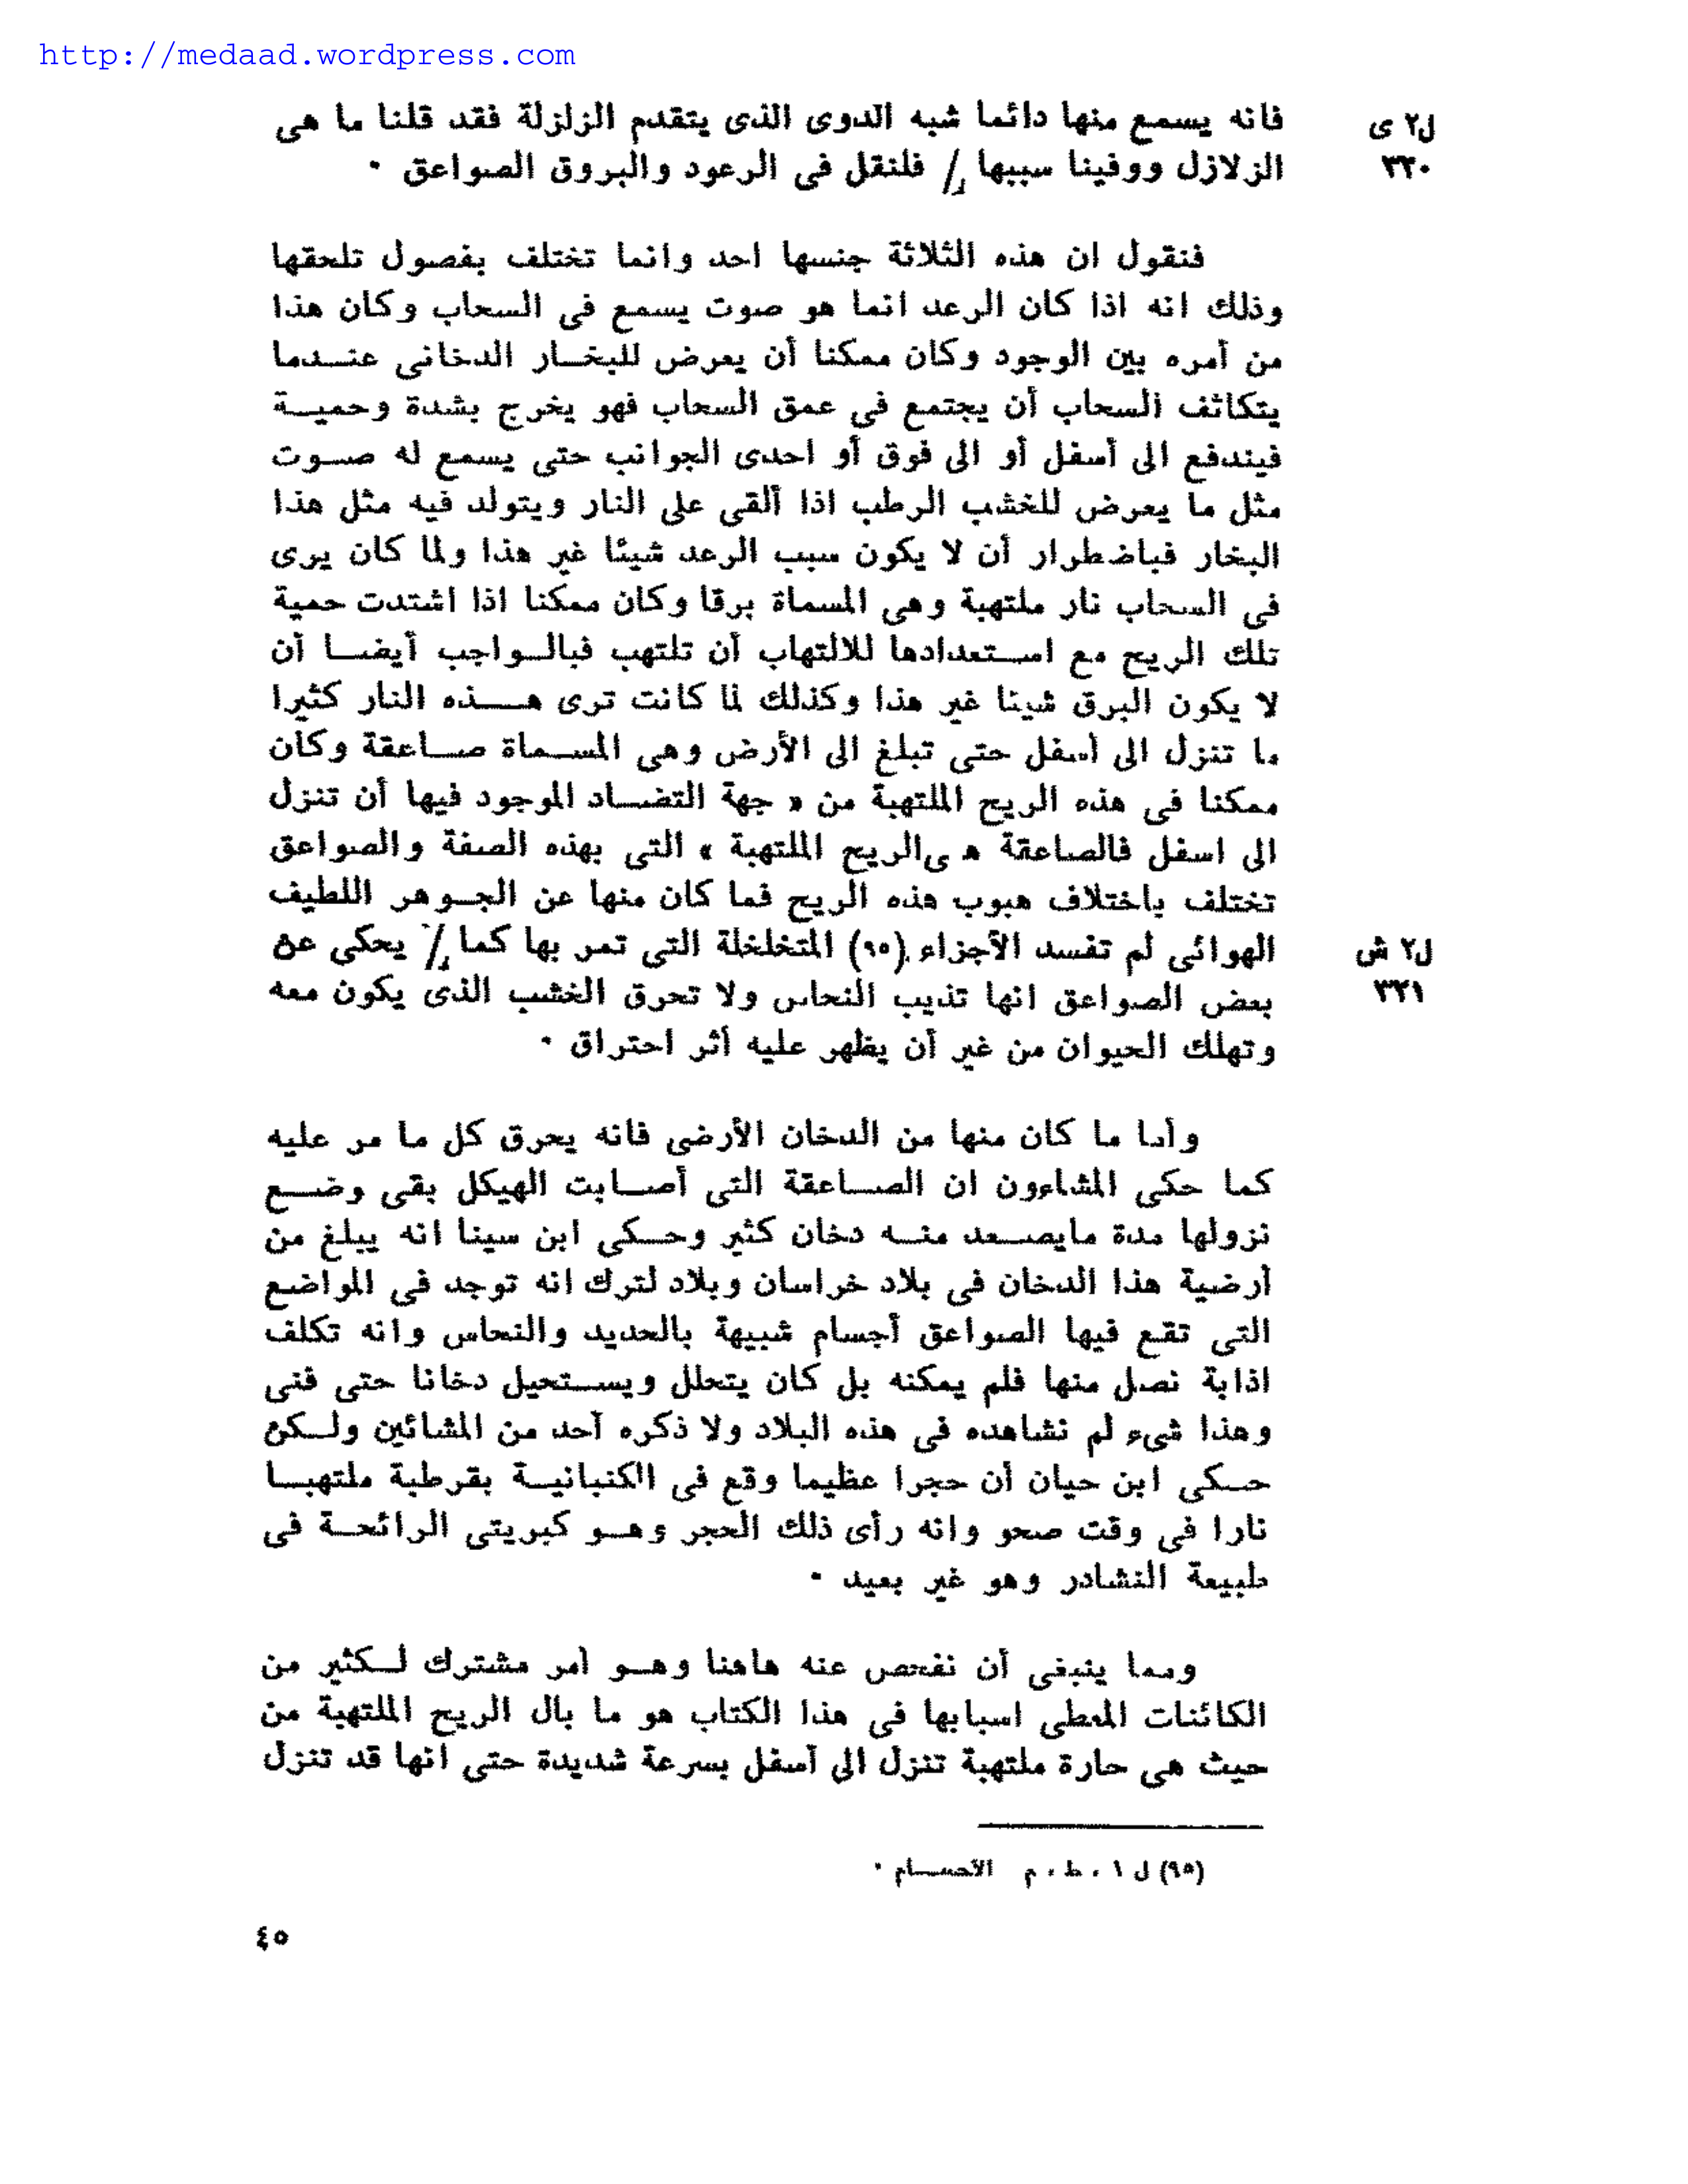 http://medaad.wordpress.com
فانه يسمع منها دائما شبه الدوى الذى يتقدم الزلزلة فقد قلنا ما هى
ل٢ ى
الزلازل ووفينا سببها / فلنقل فى الرعود والبروق الصواعق ٠
٣٢٠
فنقول ان هذه الثلاثة جنسها احد وانما تختلف بفصول تلحقها
وذلك انه اذا كان الرعد انما هو صوت يسمع فى السحاب وكان هذا
من أمره بين الوجود وكان ممكنا أن يعرض للبخـار الدخانى عنـدما
يتكاثف السحاب أن يجتمع فى عمق السحاب فهو يخرج بشدة وحميـة
فيندفع الى أسفل أو الى فوق أو احدى الجوانب حتى يسمع له صـوت
مثل ما يعرض للخشب الرطب اذا ألقى على النار ويتولد فيه مثل هذا
البخار فباضطرار أن لا يكون سبب الرعد شيئا غير هذا ولما كان يرى
فى السحاب نار ملتهبة وهى المسماة برقا وكان ممكنا اذا اشتدت حمية
تلك الريح مع اسـتعدادها للالتهاب أن تلتهب فبالـواجب أيضـا أن
لا يكون البرق شيئا غير هذا وكذلك لما كانت ترى هـذه النار كثيرا
ما تنزل الى أسفل حتى تبلغ الى الأرض وهى المسـماة صـاعقة وكان
ممكنا فى هذه الريح الملتهبة من « جهة التضـاد الموجود فيها أن تنزل
الى اسفل فالصاعقة ه ىالريح الملتهبة » التى بهذه الصفة والصواعق
تختلف باختلاف هبوب هذه الريح فما كان منها عن الجـوهر اللطيف
الهوائى لم تفسد الأجزاء (٩٥) المتخلخلة التى تمر بها كما / يحكى عن
ل٢ ش
بعض الصواعق انها تذيب النحاس ولا تحرق الخشب الذى يكون معه
٣٢١
وتهلك الحيوان من غير أن يظهر عليه أثر احتراق ٠
وأما ما كان منها من الدخان الأرضى فانه يحرق كل ما مر عليه
كما حكى المشاءون ان الصـاعقة التى أصـابت الهيكل بقى وضـع
نزولها مدة مايصـعد منـه دخان كثير وحـكى ابن سينا انه يبلغ من
أرضية هذا الدخان فى بلاد خراسان وبلاد لترك انه توجد فى المواضع
التى تقع فيها الصواعق أجسام شبيهة بالحديد والنحاس وانه تكلف
اذابة نصل منها فلم يمكنه بل كان يتحلل ويسـتحيل دخانا حتى فنى
وهذا شىء لم نشاهده فى هذه البلاد ولا ذكره أحد من المشائين ولـكن
حـكى ابن حيان أن حجرا عظيما وقع فى الكنبانيـة بقرطبة ملتهبـا
نارا فى وقت صحو وانه رأى ذلك الحجر وهـو كبريتى الرائحـة فى
طبيعة النشادر وهو غير بعيد ٠
ومما ينبغى أن نفحص عنه هاهنا وهـو أمر مشترك لـكثير من
الكائنات المعطى اسبابها فى هذا الكتاب هو ما بال الريح الملتهبة من
حيث هى حارة ملتهبة تنزل الى أسفل بسرعة شديدة حتى انها قد تنزل
(٩٥) ل ١ ، ط ، م الأجسـام ٠
٤٥